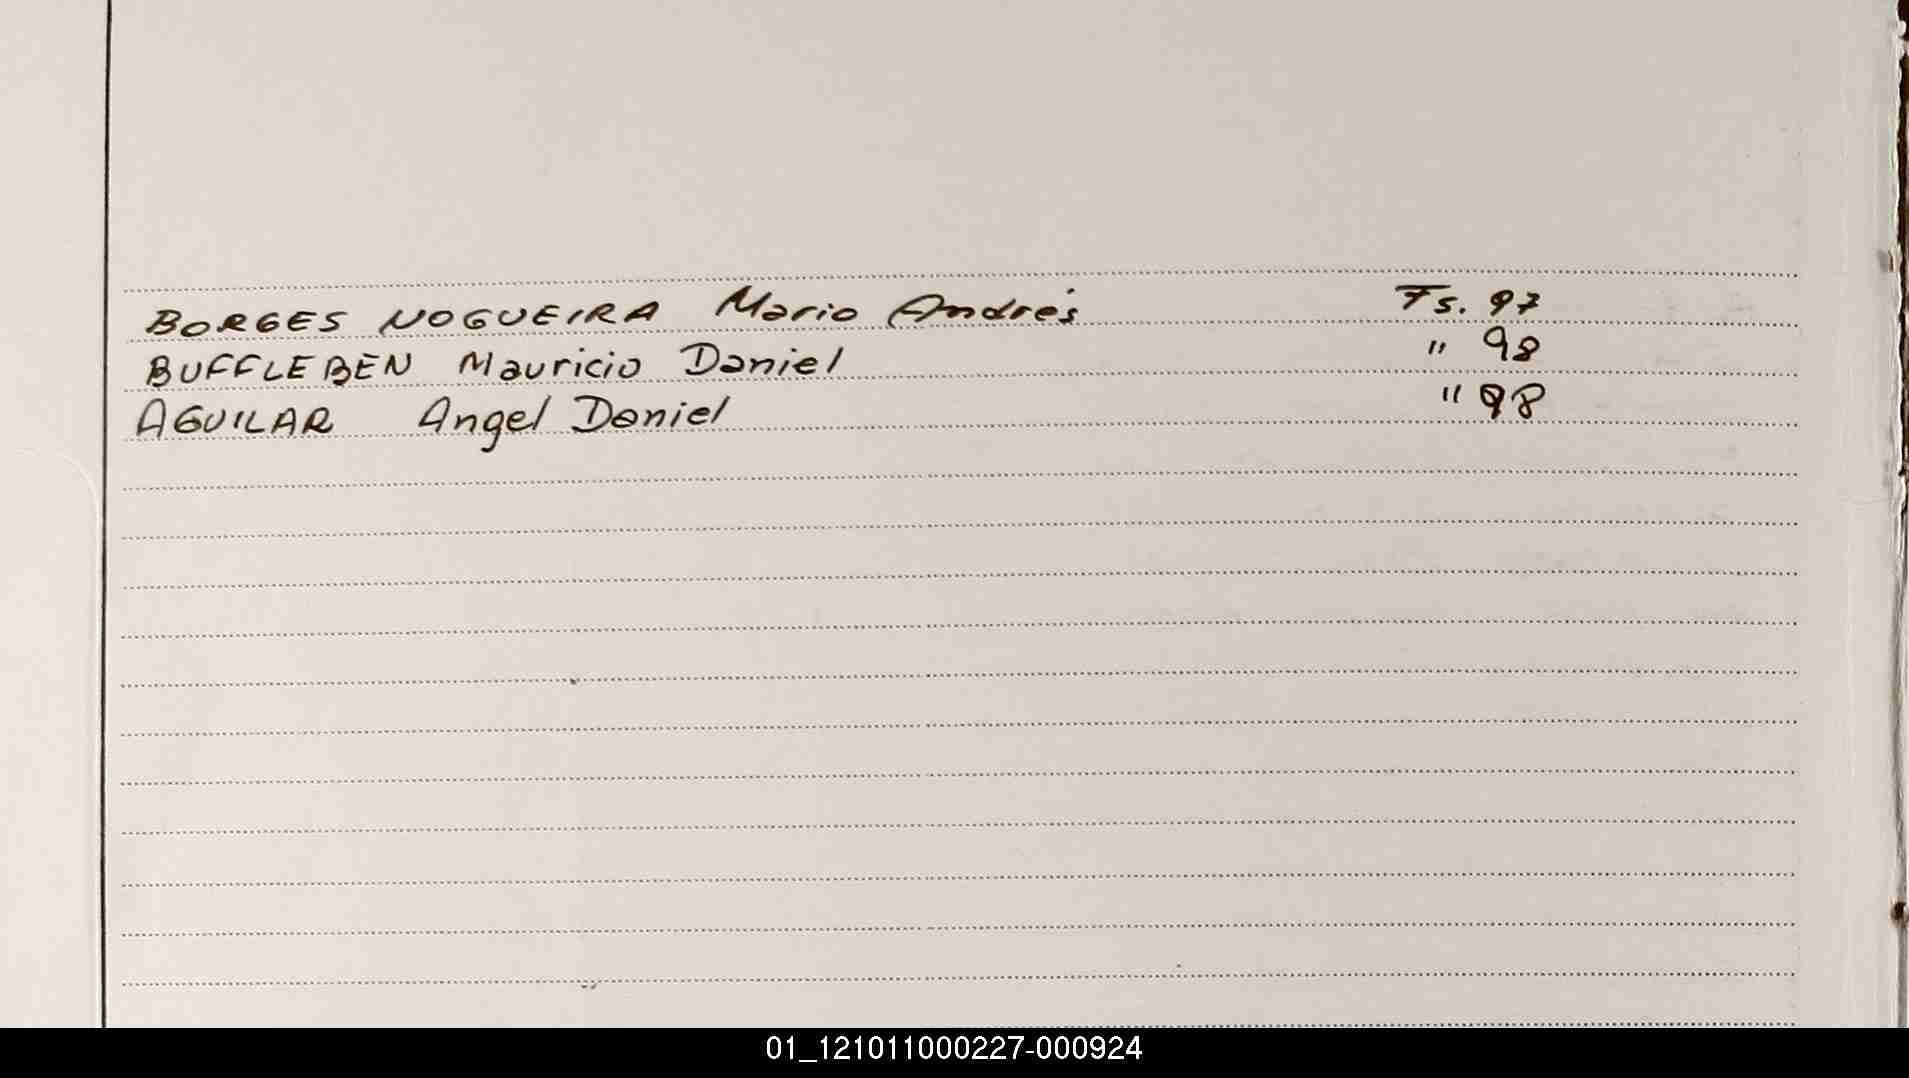 BORGES NOGUEIRA Mario Andrés Fs. 97
BUFFLEBEN Mauricio Daniel " 98
AGUILAR Angel Daniel " 98
01_121011000227-000924